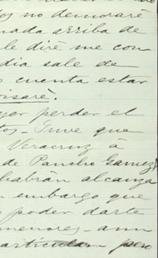 no demoraré
nada arriba de
le diré me con
dia sale de
cuenta estar
visaré.
jor perder el
tos. Tuve que
Veracruz á
de Pancho Gamez
habrán alcanza
embargo que
poder darte
menores - aun
articulam pero